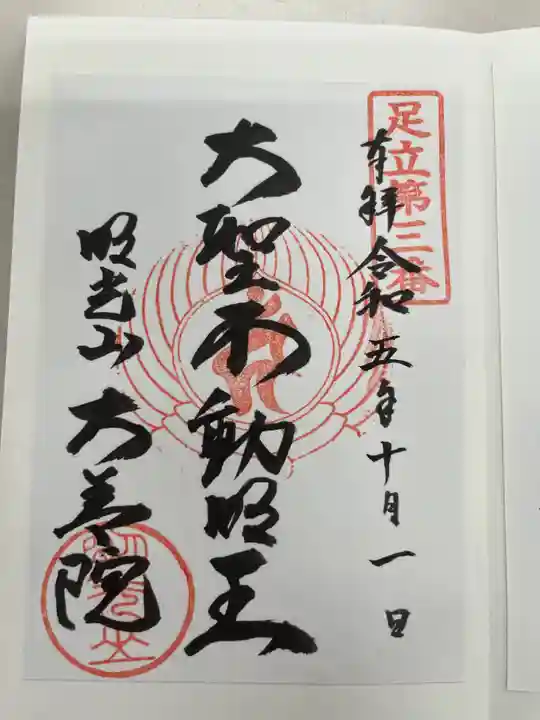 足立第三番
奉拝 令和五年十月一日
大聖不動明王
明光山 大善院